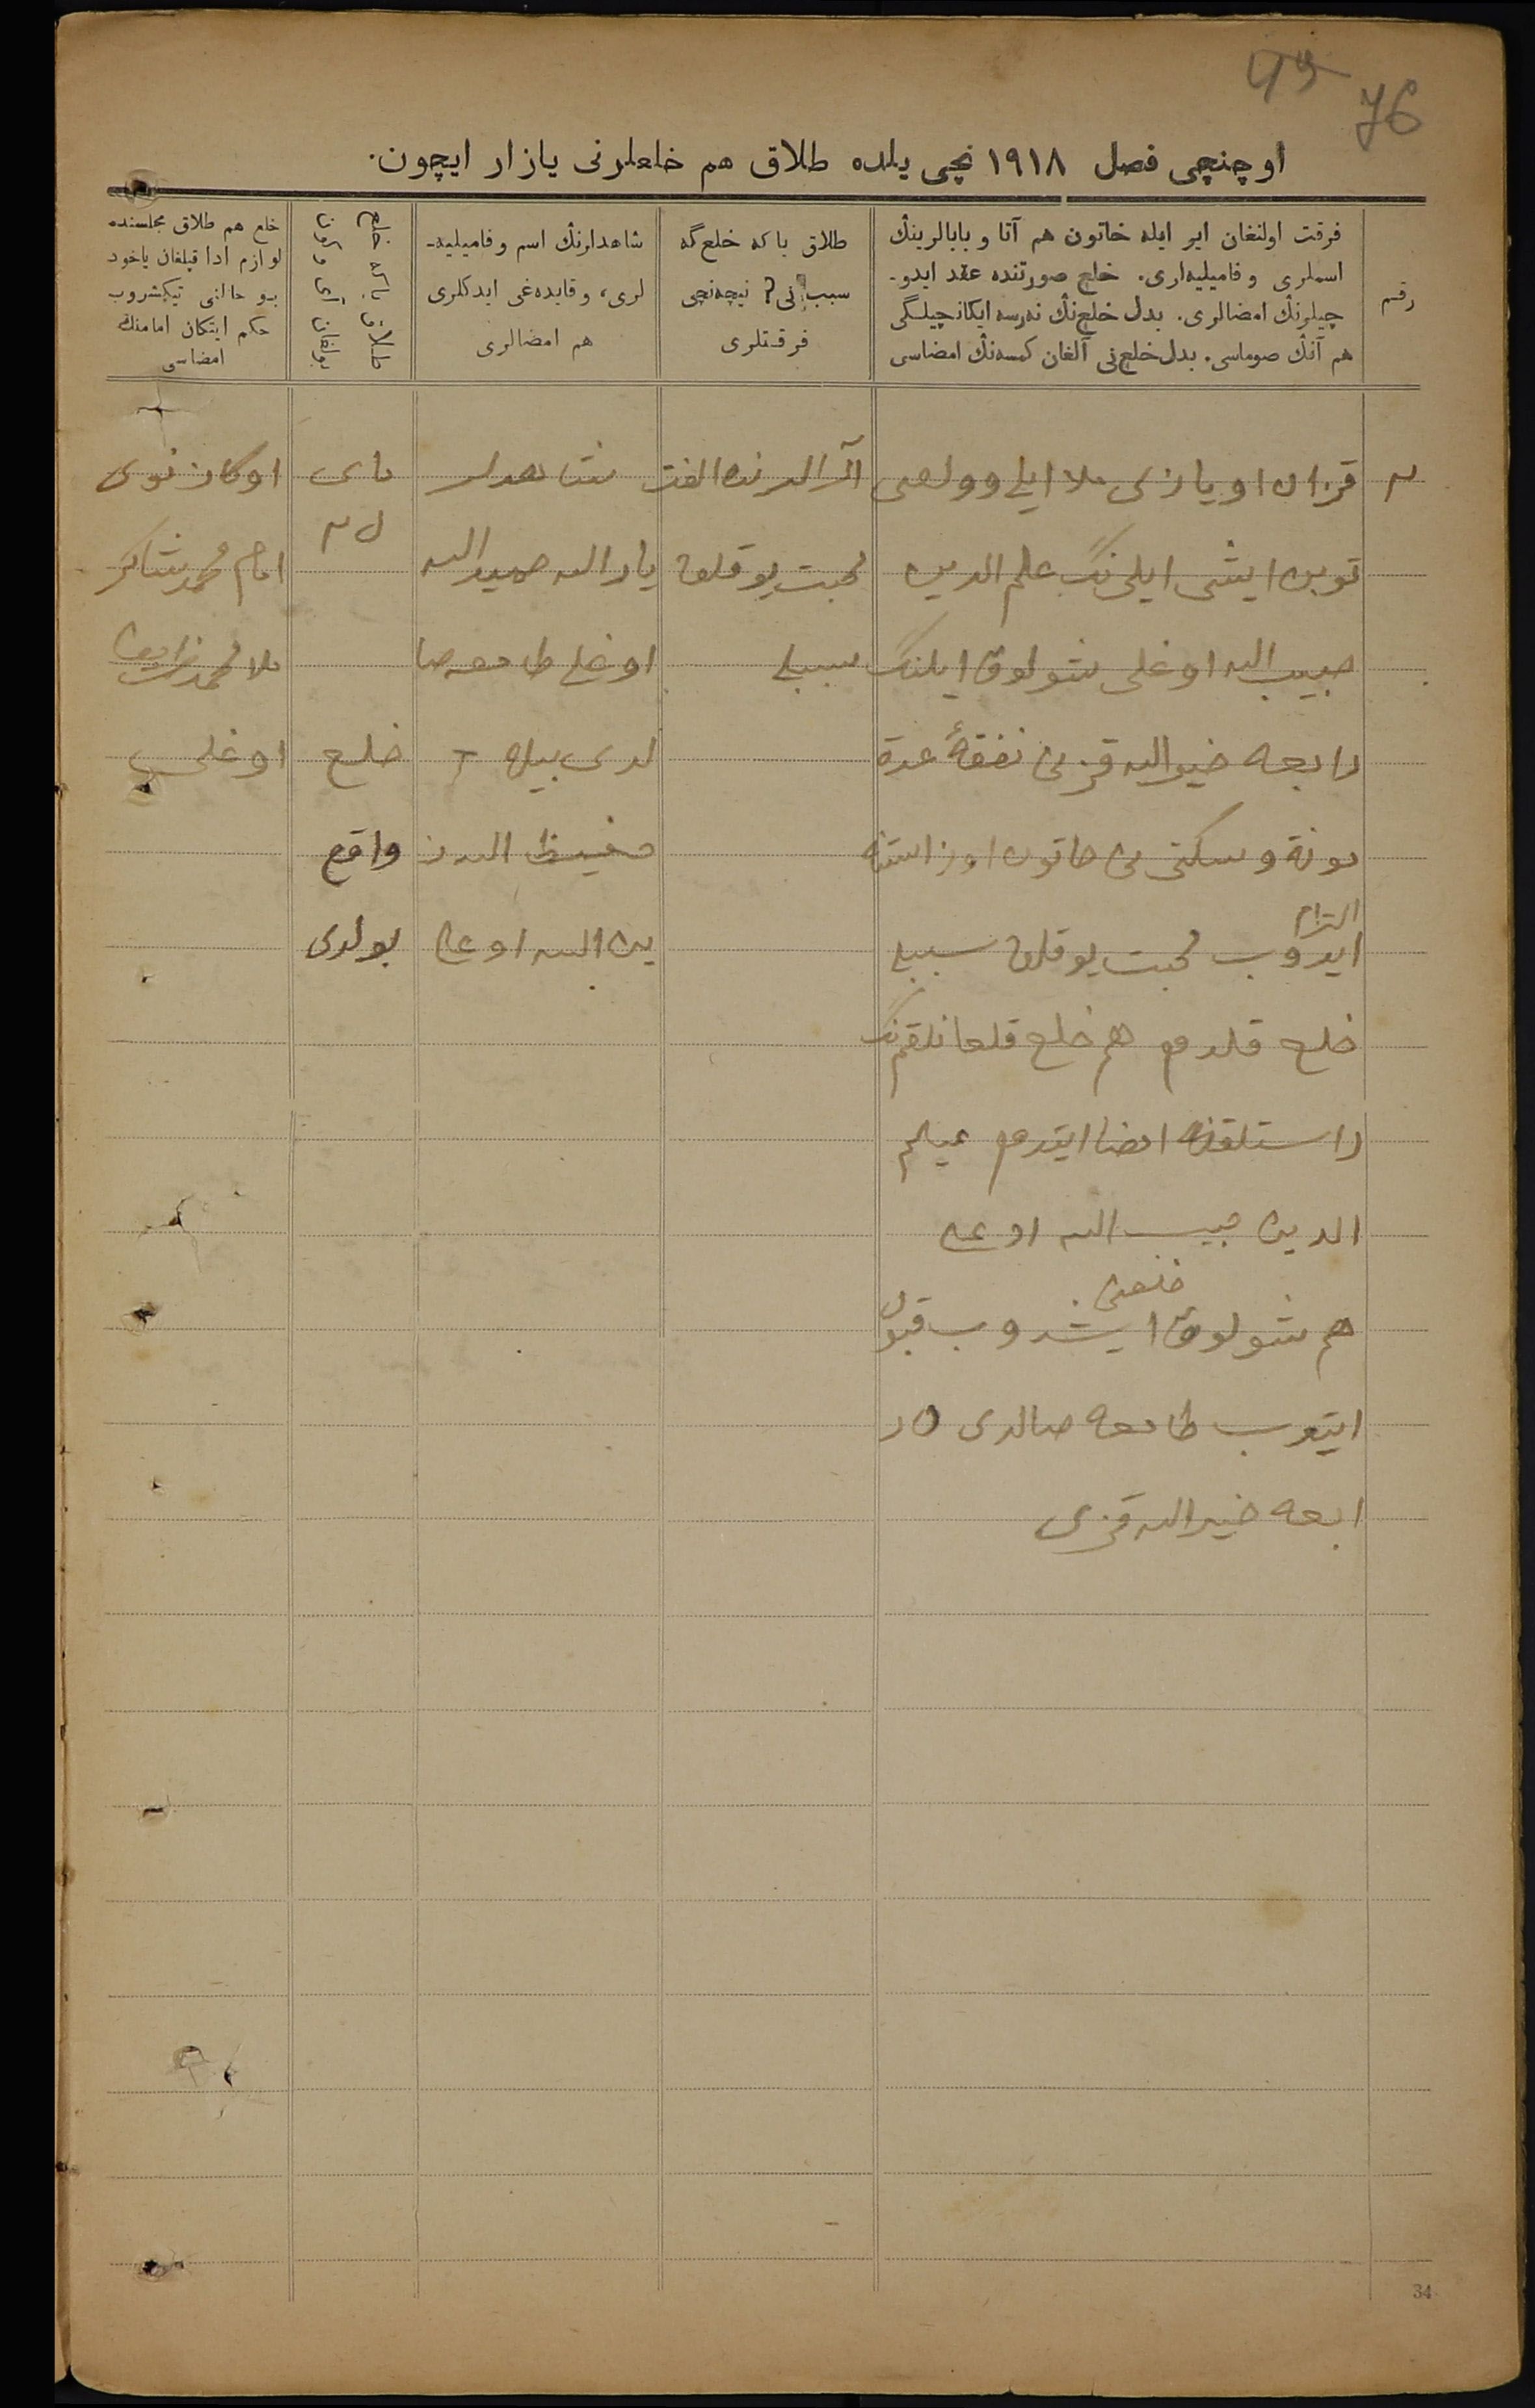 49
76
اوچنچی فصل ۱۹۱۸ نچی یلده طلاق هم خلعلرنی یازار ایچون.
رقم
فرقت اولنغان ایر ایله خاتون هم آتا و بابالرینڭ
اسملری و فامیلیه‌لری. خلع صورتنده عقد ایدو-
چیلرنڭ امضالری. بدل خلع‌نڭ نه‌رسه ایکانچیلگی
هم آنڭ صوماسی. بدل خلع‌نی آلغان کمسه‌نڭ امضاسی
طلاق یا که خلع گه
سبب نی؟ نیچه‌نچی
فرقتلری
شاهدلرنڭ اسم و فامیلیه-
لری، و قایده‌غی ایدکلری
هم امضالری
طلاق یا که خلع
بولغان آی و کون
خلع هم طلاق مجلسنده
لوازم ادا قیلغان یاخود
بو حالنی تیکشروب
حکم ایتکان امامنڭ
امضاسی
قزان اویازی ملا ایلی وولصی
توبن ایشی ایلی نڭ علم الدین
حبیب الله اوغلی شولوق ایلنڭ
رابعه خیرالله قزین نفقهٔ عدة
خاتون اوز استنه
التزام
ایدوب محبت یوقلق سببلی
خلع قلدم هم خلع
راستلقنه امضا ایتدم علیم
الدین حبیب الله اوغلی
خلعنی
هم شولوق ایشدوب قبول
ایتوب طامغه صالدی ر
ابعه خیرالله قزی
آرالرنده الفت
محبت یوقلق
سببلی
شاهدلر
یارالله حمیدالله
اوغلی طامغه صا
لدی بیله
حفیظ الدین
اوغلی
مای
خلع
واقع
بولدی
اوکازنوی
امام محمدشاکر
ملا محمد
اوغلی
34